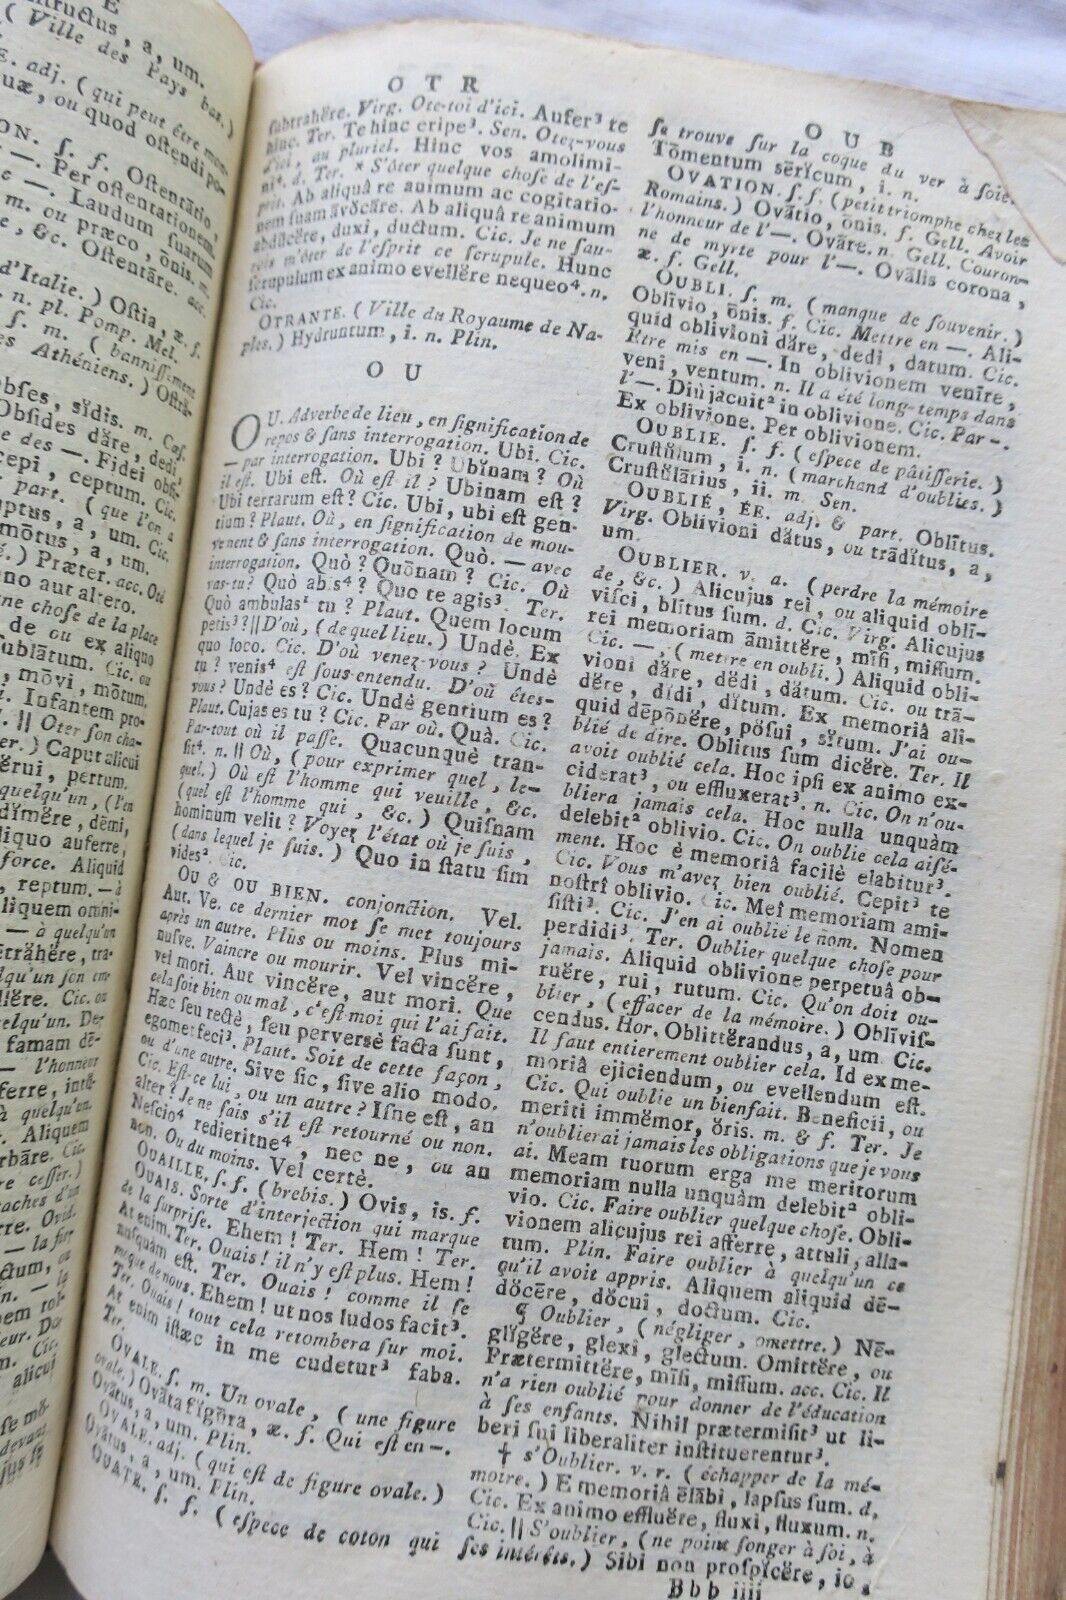 E
structus, a, um.
( Ville des Pays bas. )
E. adj. ( qui peut être mon-
uæ, ou quod ostendi po-
ON. ſ. f. Ostentatio,
—. Per ostentationem,
—. Laudum suarum
m. ou præco, ōnis. m.
, &c. Ostentāre. acc.
d'Italie. ) Ostia, æ. f.
. n. pl. Pomp. Mel.
ſ. m. ( bannissement
les Athéniens. ) Ostra-
Obses, sĭdis. m. Cæs.
Obsĭdes dăre, dedi,
ne des —. Fidei obsi-
cepi, ceptum. Cic.
part. ( que l'on a
ptus, a, um. Cic.
mōtus, a, um.
.) Præter. acc. Oté
eno aut altero.
ne chose de la place
de ou ex aliquo
ſublātum. Cic. ou
, mōvi, mōtum.
. Infantem pro-
. || Oter son cha-
er. ) Caput alicui
ĕrui, pertum.
quelqu'un, ( l'en
dĭmĕre, dēmi,
liquo auferre,
force. Aliquid
, reptum. — à
liquem omni-
— à quelqu'un
etrăhĕre, tra-
lqu'un son em-
lĕre. Cic. ou
qu'un. De
famam dē-
— l'honneur
ferre, intu-
à quelqu'un.
. Aliquem
bāre. Cic.
cesser. )
aches d'un
rre. Ovid.
— la fur-
ctum, ou
n. — la
em tol-
eur. Da
alicui
ſe mō-
devant
OTR
ſubtrahĕre. Virg. Ote-toi d'ici. Aufer³ te
hinc. Ter. Te hinc eripe³. Sen. Otez-vous
d'ici, au pluriel. Hinc vos amolimi-
ni⁴. d. Ter. * S'ôter quelque chose de l'eſ-
prit. Ab aliquâ re animum ac cogitatio-
nem ſuam āvŏcāre. Ab aliquâ re animum
abdūcĕre, duxi, ductum. Cic. Je ne ſau-
rois m'ôter de l'eſprit ce ſcrupule. Hunc
ſcrupulum ex animo evellĕre nequeo⁴. n.
Cic.
OTRANTE. ( Ville du Royaume de Na-
ples. ) Hydruntum, i. n. Plin.
OU
OU. Adverbe de lieu, en ſignification de
repos & ſans interrogation. Ubi. Cic.
— par interrogation. Ubi ? Ubĭnam ? Où
il eſt. Ubi eſt. Où eſt il ? Ubinam eſt ?
Ubi terrarum eſt ? Cic. Ubi, ubi eſt gen-
tium ? Plaut. Où, en ſignification de mou-
vement & ſans interrogation. Quò. — avec
interrogation. Quò ? Quōnam ? Cic. Où
vas-tu ? Quò abis⁴ ? Quo te agis³ Ter.
Quò ambulas¹ tu ? Plaut. Quem locum
petis³ ? || D'où, ( de quel lieu. ) Undè. Ex
quo loco. Cic. D'où venez-vous ? Undè
tu ? venis⁴ eſt ſous-entendu. D'où êtes-
vous ? Undè es ? Cic. Undè gentium es ?
Plaut. Cujas es tu ? Cic. Par où. Quà. Cic.
Par-tout où il paſſe. Quacunquè tran-
ſit⁴. n. || Où, ( pour exprimer quel, le-
quel. ) Où eſt l'homme qui veuille, &c.
( quel eſt l'homme qui, &c. ) Quiſnam
hominum velit ? Voyez l'état où je ſuis,
( dans lequel je ſuis. ) Quo in ſtatu ſim
vides². Cic.
OU & OU BIEN. conjonction. Vel.
Aut. Ve. ce dernier mot ſe met toujours
après un autre. Plus ou moins. Plus mi-
nuſve. Vaincre ou mourir. Vel vincĕre,
vel mori. Aut vincĕre, aut mori. Que
cela ſoit bien ou mal, c'eſt moi qui l'ai fait.
Hæc ſeu rectè, ſeu perversè facta ſunt,
egomet feci³. Plaut. Soit de cette façon,
ou d'une autre. Sive ſic, ſive alio modo.
Cic. Eſt-ce lui, ou un autre ? Iſne eſt, an
alter ? Je ne ſais s'il eſt retourné ou non.
Neſcio⁴ redieritne⁴, nec ne, ou an
non. Ou du moins. Vel certè.
OUAILLE. ſ. f. ( brebis. ) Ovis, is. f.
OUAIS. Sorte d'interjection qui marque
de la ſurpriſe. Ehem ! Ter. Hem ! Ter.
At enim. Ter. Ouais ! il n'y eſt plus. Hem !
nuſquàm eſt. Ter. Ouais ! comme il ſe
mocque de nous. Ehem ! ut nos ludos facit³.
Ter. Ouais ! tout cela retombera ſur moi.
At enim iſtæc in me cudetur³ faba.
Ter.
OVALE. ſ. m. Un ovale, ( une figure
ovale. ) Ovāta figūra, æ. f. Qui eſt en —.
Ovātus, a, um. Plin.
OVALE. adj. ( qui eſt de figure ovale. )
Ovātus, a, um. Plin.
OUATE. ſ. f. ( eſpece de coton qui
OUB
ſe trouve ſur la coque du ver à ſoie.
Tōmentum sēricum, i. n.
OVATION. ſ. f. ( petit triomphe chez les
Romains. ) Ovātio, ōnis. f. Gell. Avoir
l'honneur de l'—. Ovāre. n. Gell. Couron-
ne de myrte pour l'—. Ovālis corona,
æ. f. Gell.
OUBLI. ſ. m. ( manque de ſouvenir. )
Oblivio, ōnis. f. Cic. Mettre en —. Ali-
quid oblivioni dăre, dedi, datum. Cic.
Etre mis en —. In oblivionem venīre,
veni, ventum. n. Il a été long-temps dans
l'—. Diù jacuit² in oblivione. Cic. Par —.
Ex oblivione. Per oblivionem.
OUBLIE. ſ. f. ( eſpece de pâtiſſerie. )
Cruſtŭlum, i. n. ( marchand d'oublies. )
Cruſtŭlārius, ii. m. Sen.
OUBLIÉ, ÉE. adj. & part. Oblītus.
Virg. Oblivioni dătus, ou trādĭtus, a,
um.
OUBLIER. v. a. ( perdre la mémoire
de, &c. ) Alicujus rei, ou aliquid oblī-
viſci, blītus ſum. d. Cic. Virg. Alicujus
rei memoriam āmittĕre, mīſi, miſſum.
Cic. —, ( mettre en oubli. ) Aliquid obli-
vioni dăre, dĕdi, dătum. Cic. ou trā-
dĕre, dĭdi, dĭtum. Ex memoriâ ali-
quid dēpōnĕre, pŏſui, sĭtum. J'ai ou-
blié de dire. Oblitus ſum dicĕre. Ter. Il
avoit oublié cela. Hoc ipſi ex animo ex-
ciderat³, ou effluxerat³. n. Cic. On n'ou-
bliera jamais cela. Hoc nulla unquàm
delebit² oblivio. Cic. On oublie cela aiſé-
ment. Hoc è memoriâ facilè elabitur³.
Cic. Vous m'avez bien oublié. Cepit³ te
noſtrî oblivio. Cic. Meî memoriam ami-
ſiſti³. Cic. J'en ai oublié le nom. Nomen
perdidi³. Ter. Oublier quelque choſe pour
jamais. Aliquid oblivione perpetuâ ob-
ruĕre, rui, rutum. Cic. Qu'on doit ou-
blier, ( effacer de la mémoire. ) Oblīviſ-
cendus. Hor. Oblittĕrandus, a, um. Cic.
Il faut entierement oublier cela. Id ex me-
moriâ ejiciendum, ou evellendum eſt.
Cic. Qui oublie un bienfait. Beneficii, ou
meriti immĕmor, ŏris. m. & f. Ter. Je
n'oublierai jamais les obligations que je vous
ai. Meam tuorum erga me meritorum
memoriam nulla unquàm delebit² obli-
vio. Cic. Faire oublier quelque choſe. Obli-
vionem alicujus rei afferre, attuli, alla-
tum. Plin. Faire oublier à quelqu'un ce
qu'il avoit appris. Aliquem aliquid dē-
dŏcēre, dŏcui, doctum. Cic.
¶ Oublier, ( négliger, omettre. ) Nē-
glĭgĕre, glexi, glectum. Omittĕre, ou
Prætermittĕre, mīſi, miſſum. acc. Cic. Il
n'a rien oublié pour donner de l'éducation
à ſes enfants. Nihil prætermiſit³ ut li-
beri ſui liberaliter inſtituerentur³.
† s'Oublier. v. r. ( échapper de la mé-
moire. ) E memoriâ ēlābi, lapſus ſum. d.
Cic. Ex animo effluĕre, fluxi, fluxum. n.
Cic. || S'oublier, ( ne point ſonger à ſoi, à
ſes intérêts. ) Sibi non proſpĭcĕre, io,
Bbb iiij